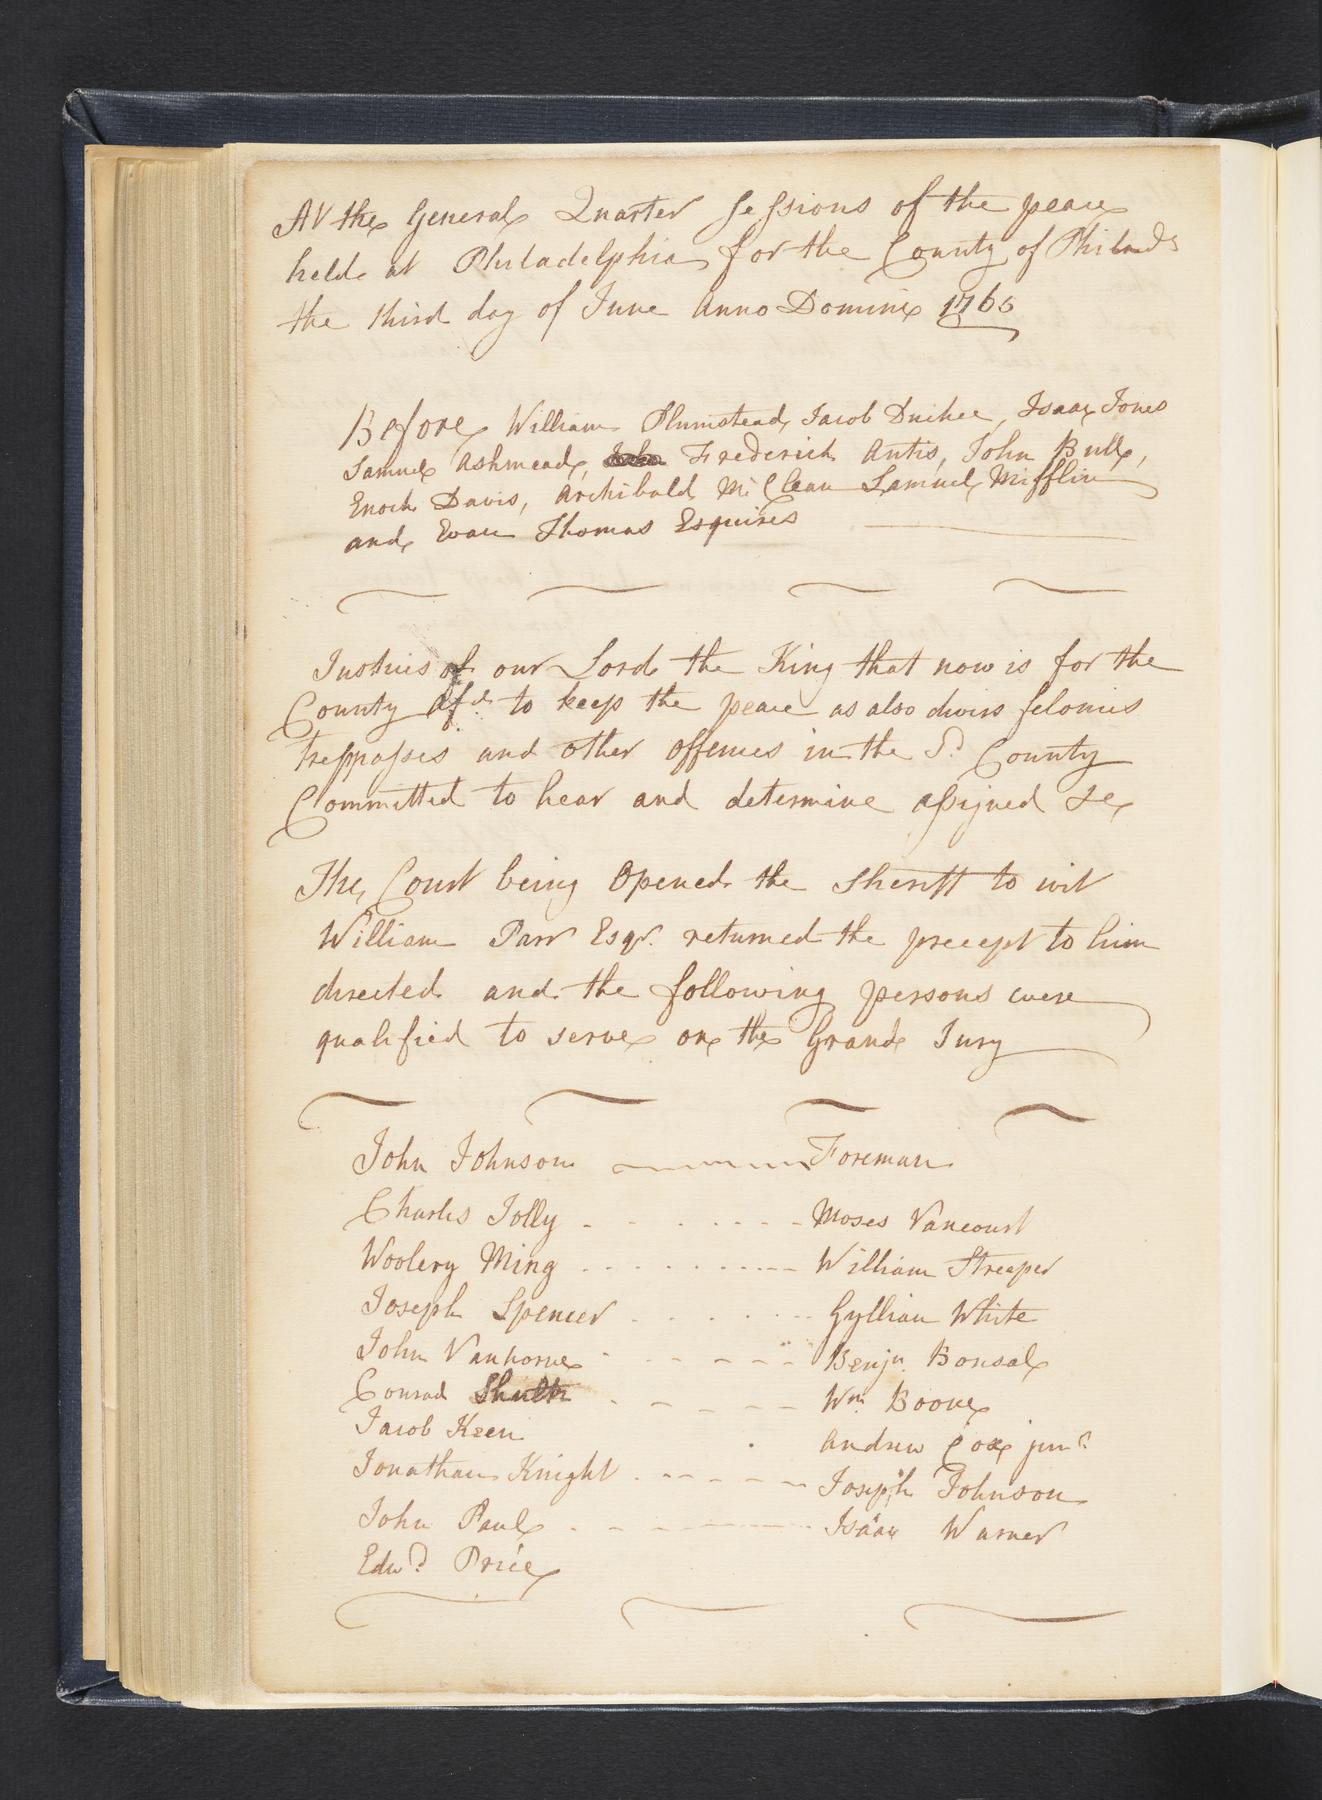 At the General Quarter Sessions of the peace
held at Philadelphia for the County of Philada
the third day of June Anno Domini 1765
Before William Plumstead, Jacob Duchee, Isaac Jones
Samuel Ashmead, Frederick Antis, John Bull,
Enoch Davis, Archibald McClean Samuel Mifflin
and Evan Thomas Esquires
Justices of our Lord the King that now is for the
County afd. to keep the peace as also divers felonies
trespasses and other offences in the Sd. County
Committed to hear and determine assigned &c
The Court being Opened the Sheriff to wit
William Parr Esqr. returned the precept to him
directed and the following persons were
qualified to serve on the Grand Jury
John Johnson Foreman
Charles Jolly - - - - - - - Moses Vancourt
Woolery Ming - - - - - - - William Streaper
Joseph Spencer - - - - - Gyllian White
John Vanhorne - - - - - Benjn. Bonsal
Conrad Shultz - - - - - Wm. Boone
Jacob Keen Andrew Cox junr.
Jonathan Knight - - - - - Joseph Johnson
John Paul - - - - Isaac Warner
Edwd. Price